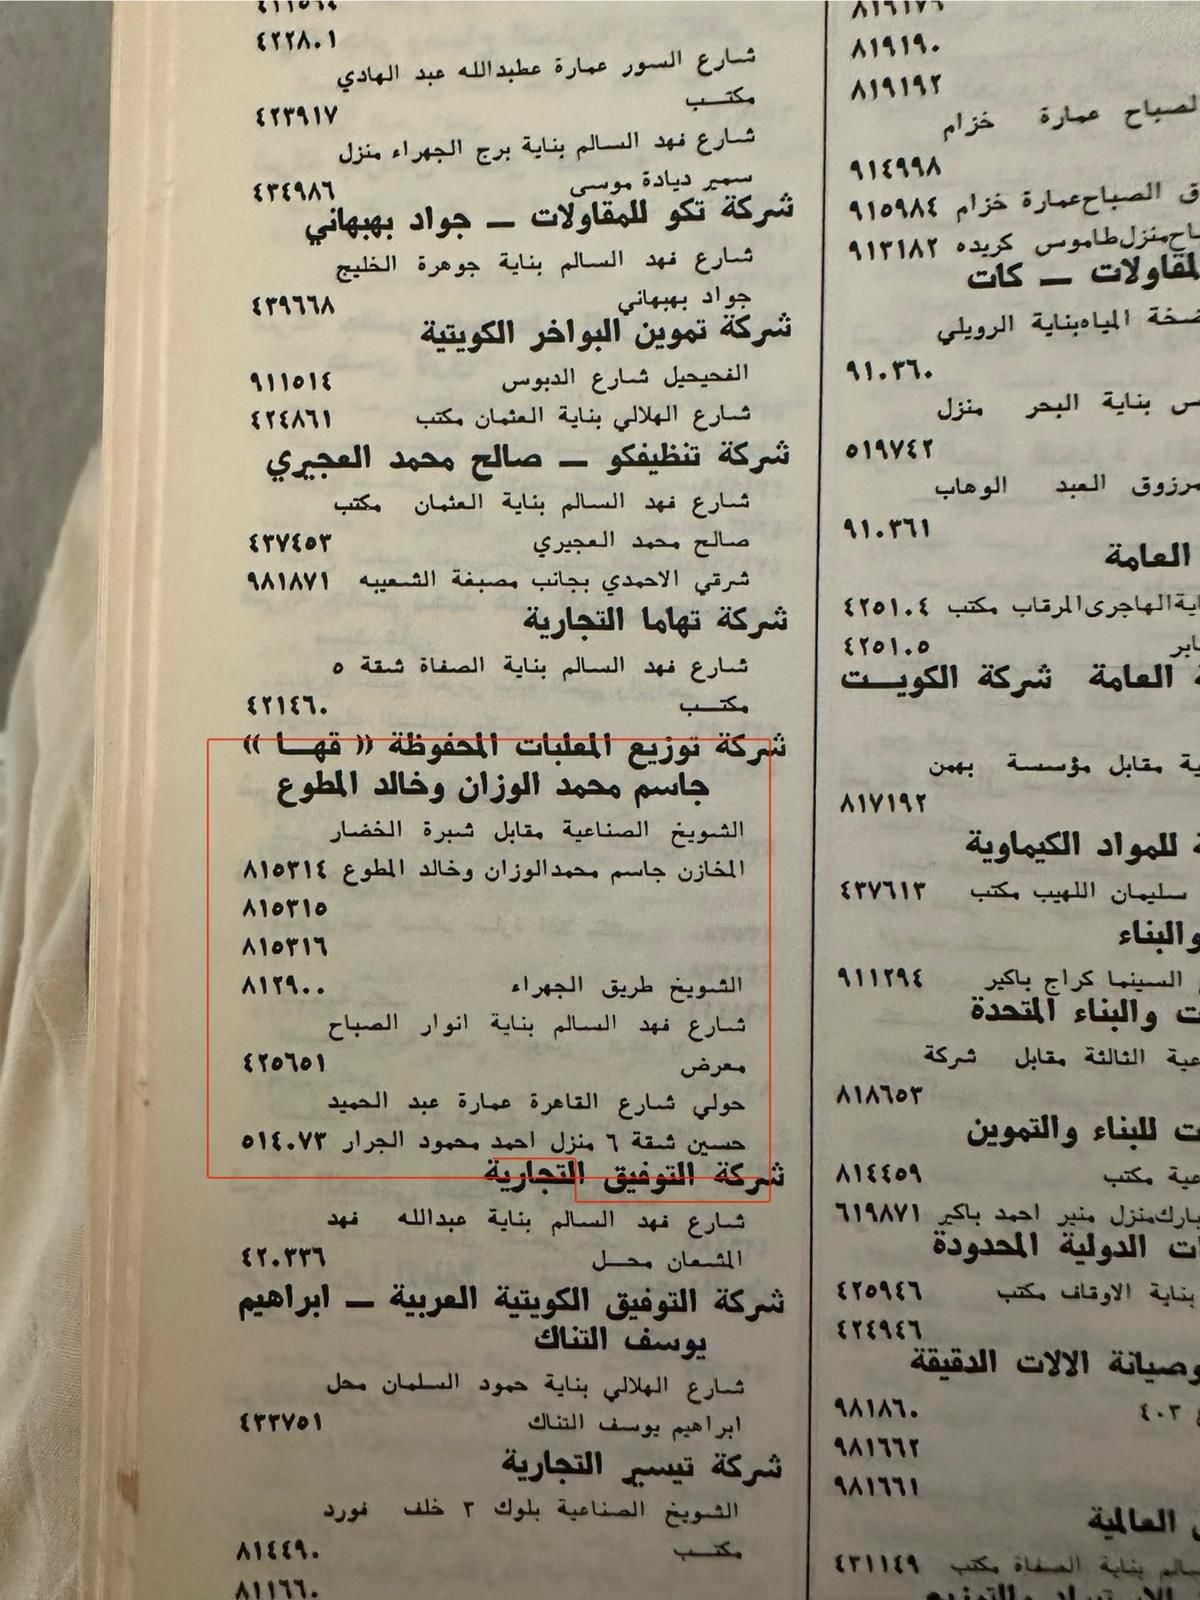 ٨١٩١٩٠
٨١٩١٩٢
لصباح عمارة خزام
٩١٤٩٩٨
ق الصباح عمارة خزام ٩١٥٩٨٤
اح منزل طاموس كريده ٩١٣١٨٢
لمقاولات ــ كات
ضخة المياه بناية الرويلي
٩١٠٣٦٠
س بناية البحر منزل
٥١٩٧٤٢
مرزوق العبد الوهاب
٩١٠٣٦١
العامة
اية الهاجرى المرقاب مكتب ٤٢٥١٠٤
ابر ٤٢٥١٠٥
ة العامة شركة الكويــت
ية مقابل مؤسسة بهمن
٨١٧١٩٢
ة للمواد الكيماوية
سليمان اللهيب مكتب ٤٣٧٦١٣
والبناء
السينما كراج باكير ٩١١٢٩٤
ت والبناء المتحدة
عية الثالثة مقابل شركة
٨١٨٦٥٣
ت للبناء والتموين
عية مكتب ٨١٤٤٥٩
بارك منزل منير احمد باكير ٦١٩٨٧١
ات الدولية المحدودة
بناية الاوقاف مكتب ٤٢٥٩٤٦
٤٢٤٩٤٦
وصيانة الالات الدقيقة
٤٠٣ ٩٨١٨٦٠
٩٨١٦٦٢
٩٨١٦٦١
العالمية
سالم بناية الصفاة مكتب ٤٣١١٤٩
٤٢٢٨٠١
شارع السور عمارة عطبدالله عبد الهادي
مكتــب ٤٢٣٩١٧
شارع فهد السالم بناية برج الجهراء منزل
سمير ديادة موسى ٤٣٤٩٨٦
شركة تكو للمقاولات ــ جواد بهبهاني
شارع فهد السالم بناية جوهرة الخليج
جواد بهبهاني ٤٣٩٦٦٨
شركة تموين البواخر الكويتية
الفحيحيل شارع الدبوس ٩١١٥١٤
شارع الهلالي بناية العثمان مكتب ٤٢٤٨٦١
شركة تنظيفكو ــ صالح محمد العجيري
شارع فهد السالم بناية العثمان مكتب
صالح محمد العجيري ٤٣٧٤٥٣
شرقي الاحمدي بجانب مصبغة الشعيبه ٩٨١٨٧١
شركة تهاما التجارية
شارع فهد السالم بناية الصفاة شقة ٥
مكتــب ٤٢١٤٦٠
شركة توزيع المعلبات المحفوظة (( قهــا ))
جاسم محمد الوزان وخالد المطوع
الشويخ الصناعية مقابل شبرة الخضار
المخازن جاسم محمد الوزان وخالد المطوع ٨١٥٣١٤
٨١٥٣١٥
٨١٥٣١٦
الشويخ طريق الجهراء ٨١٢٩٠٠
شارع فهد السالم بناية انوار الصباح
معرض ٤٢٥٦٥١
حولي شارع القاهرة عمارة عبد الحميد
حسين شقة ٦ منزل احمد محمود الجرار ٥١٤٠٧٣
شركة التوفيق التجارية
شارع فهد السالم بناية عبدالله فهد
المشعان محــل ٤٢٠٣٣٦
شركة التوفيق الكويتية العربية ــ ابراهيم
يوسف التناك
شارع الهلالي بناية حمود السلمان محل
ابراهيم يوسف التناك ٤٣٣٧٥١
شركة تيسير التجارية
الشويخ الصناعية بلوك ٢ خلف فورد
مكتــب ٨١٤٤٩٠
٨١١٦٦٠